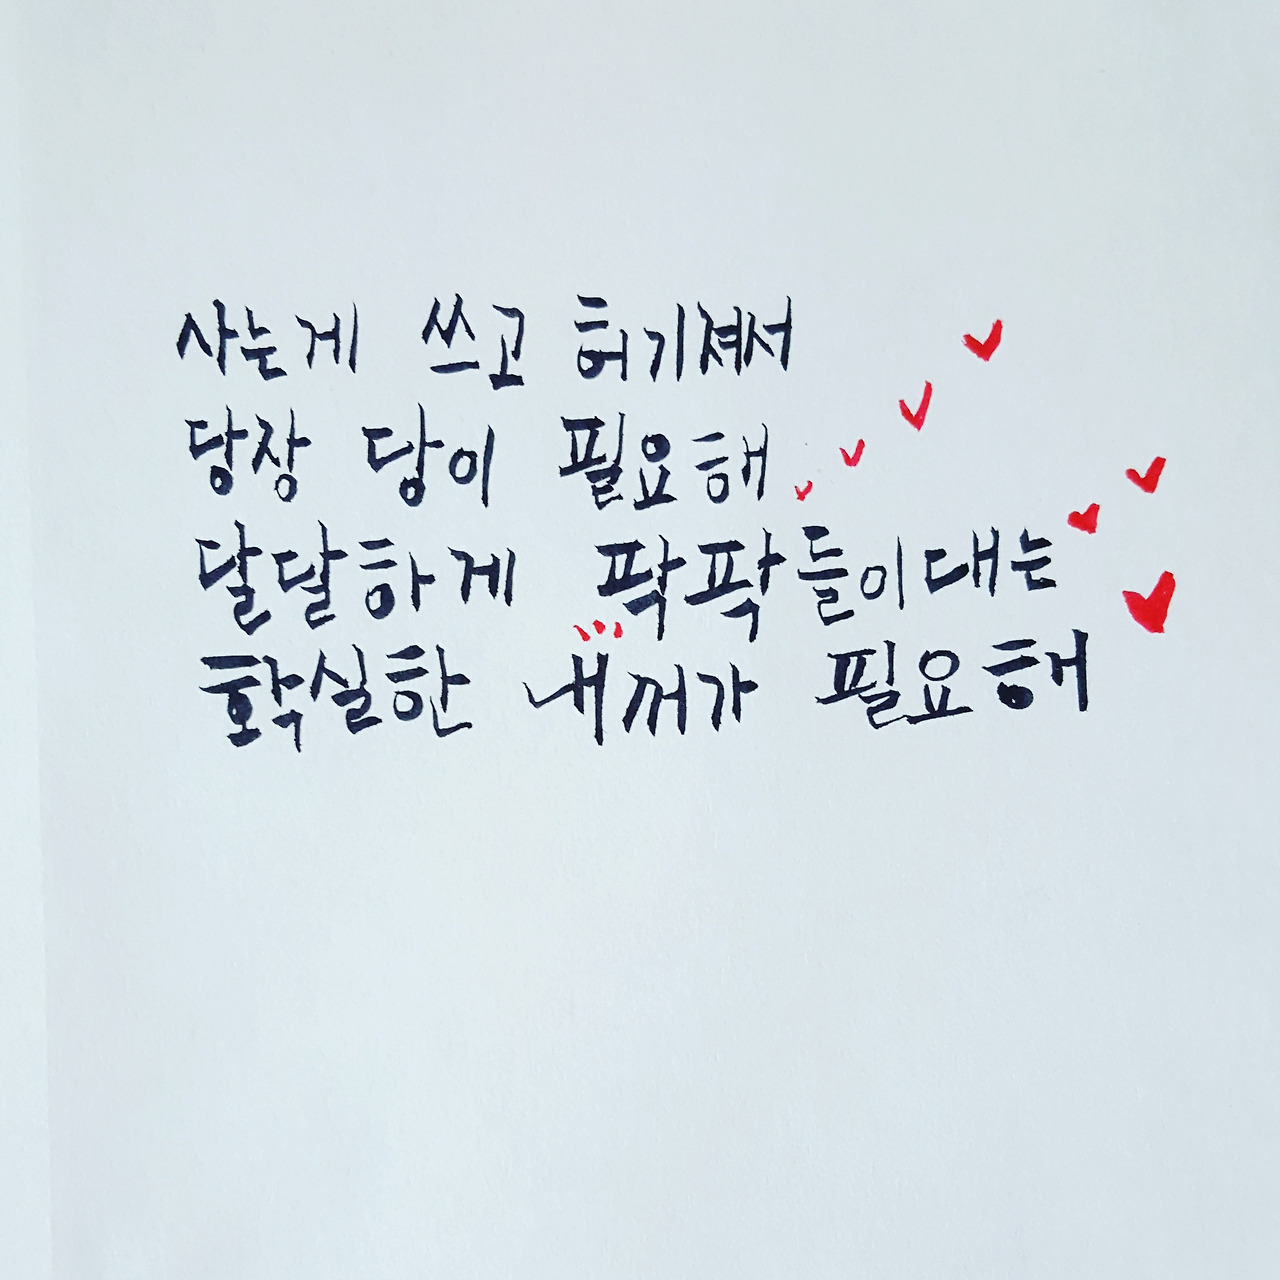 사는게 쓰고 허기져서
당장 당이 필요해
달달하게 팍팍들이대는
확실한 내꺼가 필요해